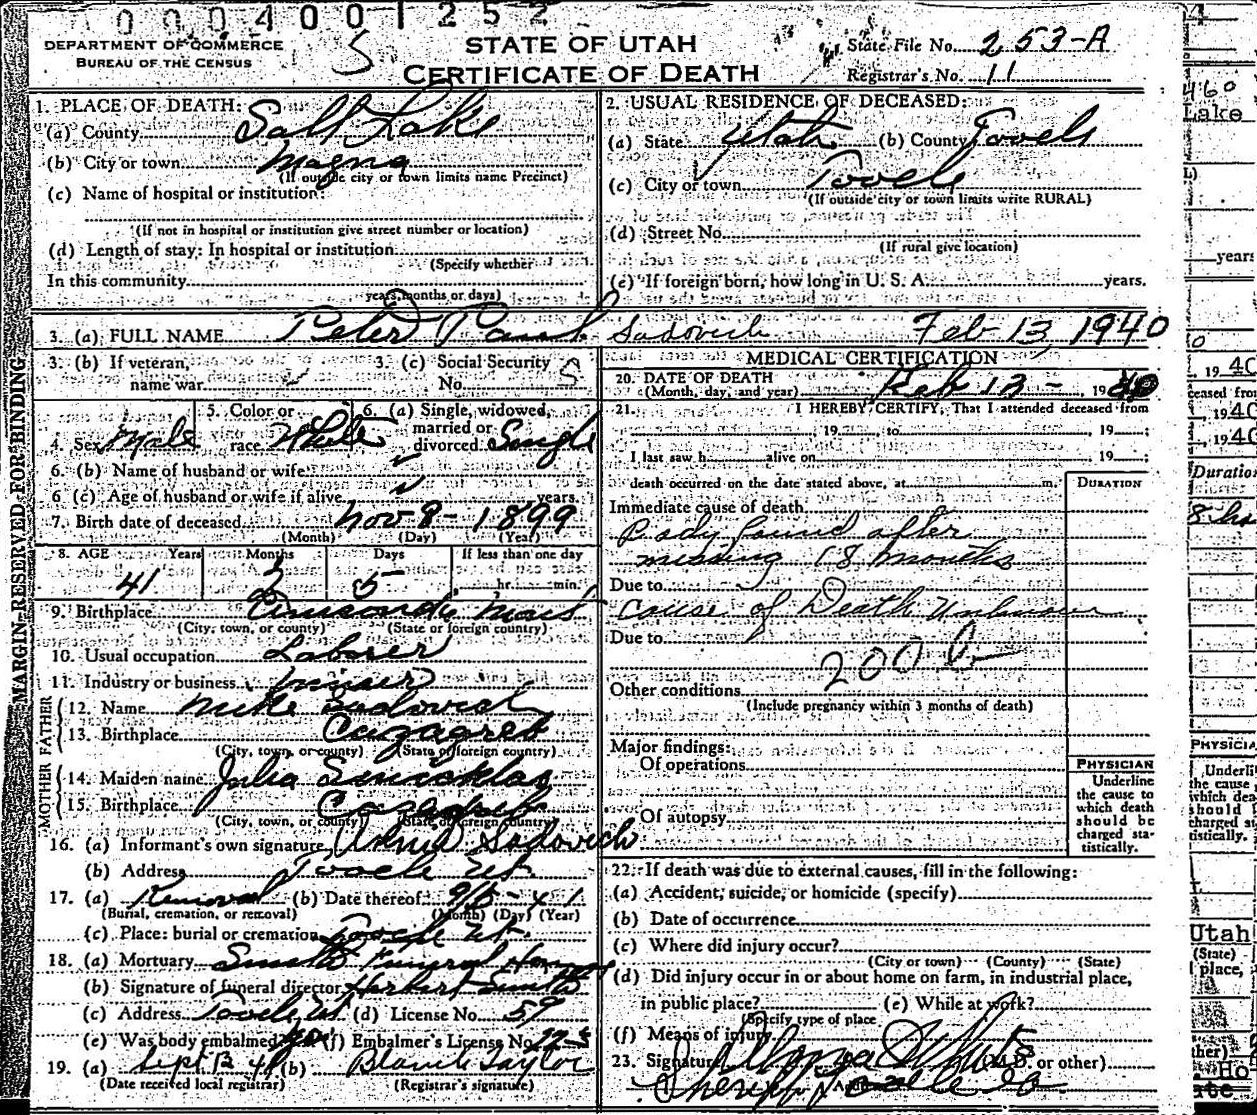 0000400 1252
DEPARTMENT OF COMMERCE
BUREAU OF THE CENSUS
S
STATE OF UTAH
CERTIFICATE OF DEATH
State File No. 253-A
Registrar's No. 11
1. PLACE OF DEATH:
(a) County Salt Lake
(b) City or town Magna
(If outside city or town limits name Precinct)
(c) Name of hospital or institution:
(If not in hospital or institution give street number or location)
(d) Length of stay: In hospital or institution
(Specify whether
In this community
years, months or days)
2. USUAL RESIDENCE OF DECEASED:
(a) State Utah (b) County Tooele
(c) City or town Tooele
(If outside city or town limits write RURAL)
(d) Street No.
(If rural give location)
(e) If foreign born, how long in U. S. A. years.
3. (a) FULL NAME Peter Paul Sadovich Feb 13, 1940
3. (b) If veteran, name war
3. (c) Social Security No.
4. Sex Male
5. Color or race White
6. (a) Single, widowed, married or divorced Single
6. (b) Name of husband or wife
6 (c) Age of husband or wife if alive years.
7. Birth date of deceased Nov 8 - 1899
(Month) (Day) (Year)
8. AGE Years Months Days If less than one day
41 5 hr. min.
9. Birthplace
(City, town, or county) (State or foreign country)
10. Usual occupation Laborer
11. Industry or business
FATHER
12. Name Mike Sadovich
13. Birthplace
(City, town, or county) (State or foreign country)
MOTHER
14. Maiden name Julia
15. Birthplace
(City, town, or county) (State or foreign country)
16. (a) Informant's own signature Sadovich
(b) Address Tooele Ut.
17. (a) Removal (b) Date thereof 9/6-41
(Burial, cremation, or removal) (Month) (Day) (Year)
(c) Place: burial or cremation Tooele Ut.
18. (a) Mortuary Smith Funeral Home
(b) Signature of funeral director Herbert Smith
(c) Address Tooele, Ut (d) License No. 59
(e) Was body embalmed (f) Embalmer's License No.
19. (a) Sept 12 (b) Blanch Taylor
(Date received local registrar) (Registrar's signature)
MEDICAL CERTIFICATION
20. DATE OF DEATH Feb 13 - 1940
(Month, day, and year)
21. I HEREBY CERTIFY, That I attended deceased from
, 19 , to , 19 ;
I last saw h alive on 19 ;
death occurred on the date stated above, at m.
DURATION
Immediate cause of death
Body found after
missing 18 months
Due to
Cause of Death Unknown
Due to
200
Other conditions
(Include pregnancy within 3 months of death)
Major findings:
Of operations
Of autopsy
PHYSICIAN
Underline the cause to which death should be charged statistically.
22. If death was due to external causes, fill in the following:
(a) Accident, suicide, or homicide (specify)
(b) Date of occurrence
(c) Where did injury occur?
(City or town) (County) (State)
(d) Did injury occur in or about home on farm, in industrial place,
in public place? (e) While at work?
(Specify type of place
(f) Means of injury
23. Signature (M.D. or other)
Sheriff Tooele Co
MARGIN RESERVED FOR BINDING
460
Lake
years
, 19 40
ceased from
, 1940
, 1940
Duration
PHYSICIA
Utah
(State)
place,